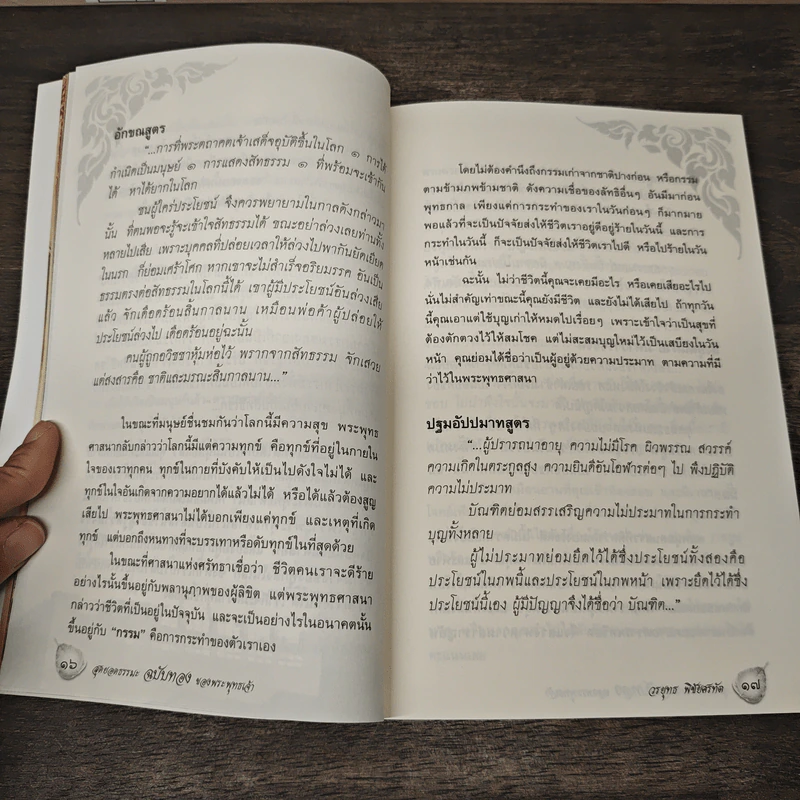 อักขณสูตร
"...การที่พระตถาคตเจ้าเสด็จอุบัติขึ้นในโลก ๑ การได้
กำเนิดเป็นมนุษย์ ๑ การแสดงสัทธรรม ๑ ที่พร้อมจะเข้ากัน
ได้ หาได้ยากในโลก
ชนผู้ใคร่ประโยชน์ จึงควรพยายามในกาลดังกล่าวมา
นั้น ที่ตนพอจะรู้จะเข้าใจสัทธรรมได้ ขณะอย่าล่วงเลยท่านทั้ง
หลายไปเสีย เพราะบุคคลที่ปล่อยเวลาให้ล่วงไปพากันยัดเยียด
ในนรก ก็ย่อมเศร้าโศก หากเขาจะไม่สำเร็จอริยมรรค อันเป็น
ธรรมตรงต่อสัทธรรมในโลกนี้ได้ เขาผู้มีประโยชน์อันล่วงเสีย
แล้ว จักเดือดร้อนสิ้นกาลนาน เหมือนพ่อค้าผู้ปล่อยให้
ประโยชน์ล่วงไป เดือดร้อนอยู่ฉะนั้น
คนผู้ถูกอวิชชาหุ้มห่อไว้ พรากจากสัทธรรม จักเสวย
แต่สงสารคือ ชาติและมรณะสิ้นกาลนาน..."
ในขณะที่มนุษย์ชื่นชมกันว่าโลกนี้มีความสุข พระพุทธ
ศาสนากลับกล่าวว่าโลกนี้มีแต่ความทุกข์ คือทุกข์ที่อยู่ในกายใน
ใจของเราทุกคน ทุกข์ในกายที่บังคับให้เป็นไปดังใจไม่ได้ และ
ทุกข์ในใจอันเกิดจากความอยากได้แล้วไม่ได้ หรือได้แล้วต้องสูญ
เสียไป พระพุทธศาสนาไม่ได้บอกเพียงแค่ทุกข์ และเหตุที่เกิด
ทุกข์ แต่บอกถึงหนทางที่จะบรรเทาหรือดับทุกข์ในที่สุดด้วย
ในขณะที่ศาสนาแห่งศรัทธาเชื่อว่า ชีวิตคนเราจะดีร้าย
อย่างไรนั้นขึ้นอยู่กับพลานุภาพของผู้ลิขิต แต่พระพุทธศาสนา
กล่าวว่าชีวิตที่เป็นอยู่ในปัจจุบัน และจะเป็นอย่างไรในอนาคตนั้น
ขึ้นอยู่กับ "กรรม" คือการกระทำของตัวเราเอง
๑๖ สุดยอดธรรมะ ฉบับทอง ของพระพุทธเจ้า
โดยไม่ต้องคำนึงถึงกรรมเก่าจากชาติปางก่อน หรือกรรม
ตามข้ามภพข้ามชาติ ดังความเชื่อของลัทธิอื่นๆ อันมีมาก่อน
พุทธกาล เพียงแค่การกระทำของเราในวันก่อนๆ ก็มากมาย
พอแล้วที่จะเป็นปัจจัยส่งให้ชีวิตเราอยู่ดีอยู่ร้ายในวันนี้ และการ
กระทำในวันนี้ ก็จะเป็นปัจจัยส่งให้ชีวิตเราไปดี หรือไปร้ายในวัน
หน้าเช่นกัน
ฉะนั้น ไม่ว่าชีวิตนี้คุณจะเคยมีอะไร หรือเคยเสียอะไรไป
นั่นไม่สำคัญเท่าขณะนี้คุณยังมีชีวิต และยังไม่ได้เสียไป ถ้าทุกวัน
นี้คุณเอาแต่ใช้บุญเก่าให้หมดไปเรื่อยๆ เพราะเข้าใจว่าเป็นสุขที่
ต้องตักตวงไว้ให้สมโชค แต่ไม่สะสมบุญใหม่ไว้เป็นเสบียงในวัน
หน้า คุณย่อมได้ชื่อว่าเป็นผู้อยู่ด้วยความประมาท ตามความที่มี
ว่าไว้ในพระพุทธศาสนา
ปฐมอัปปมาทสูตร
"...ผู้ปรารถนาอายุ ความไม่มีโรค ผิวพรรณ สวรรค์
ความเกิดในตระกูลสูง ความยินดีอันโอฬารต่อๆ ไป พึงปฏิบัติ
ความไม่ประมาท
บัณฑิตย่อมสรรเสริญความไม่ประมาทในการกระทำ
บุญทั้งหลาย
ผู้ไม่ประมาทย่อมยึดไว้ได้ซึ่งประโยชน์ทั้งสองคือ
ประโยชน์ในภพนี้และประโยชน์ในภพหน้า เพราะยึดไว้ได้ซึ่ง
ประโยชน์นี้เอง ผู้มีปัญญาจึงได้ชื่อว่า บัณฑิต..."
วรยุทธ พิชัยศรทัต ๑๗